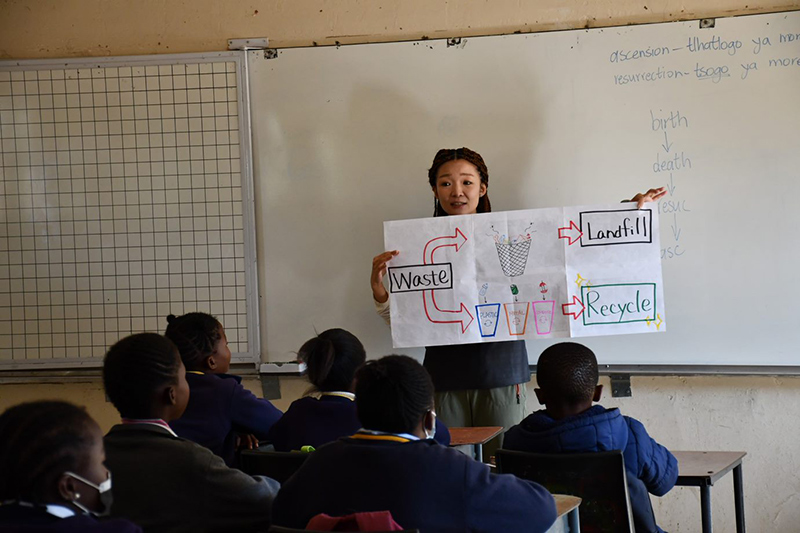 ascension - tlhatlogo ya
resurrection - tsogo ya more
birth
death
Waste
Landfill
Recycle